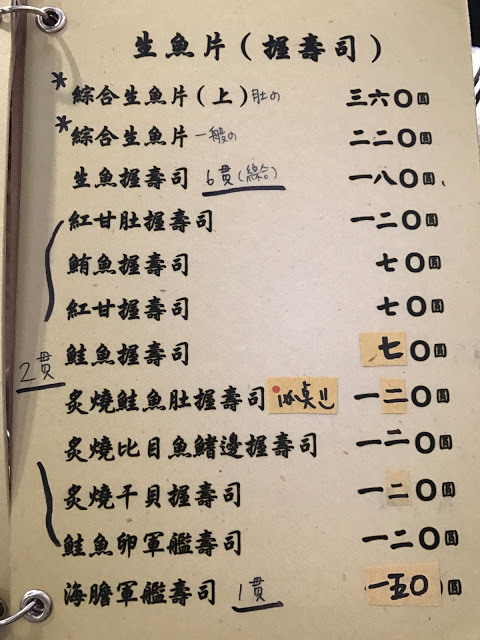 生魚片(握壽司)
*綜合生魚片(上)肚の 三六〇圓
*綜合生魚片 一般の 二二〇圓
生魚握壽司 6貫(綜合) 一八〇圓
紅甘肚握壽司 一二〇圓
鮪魚握壽司 七〇圓
紅甘握壽司 七〇圓
鮭魚握壽司 七〇圓
2貫
炙燒鮭魚肚握壽司 一二〇圓
炙燒比目魚鰭邊握壽司 一二〇圓
炙燒干貝握壽司 一二〇圓
鮭魚卵軍艦壽司 一二〇圓
海膽軍艦壽司 1貫 一五〇圓